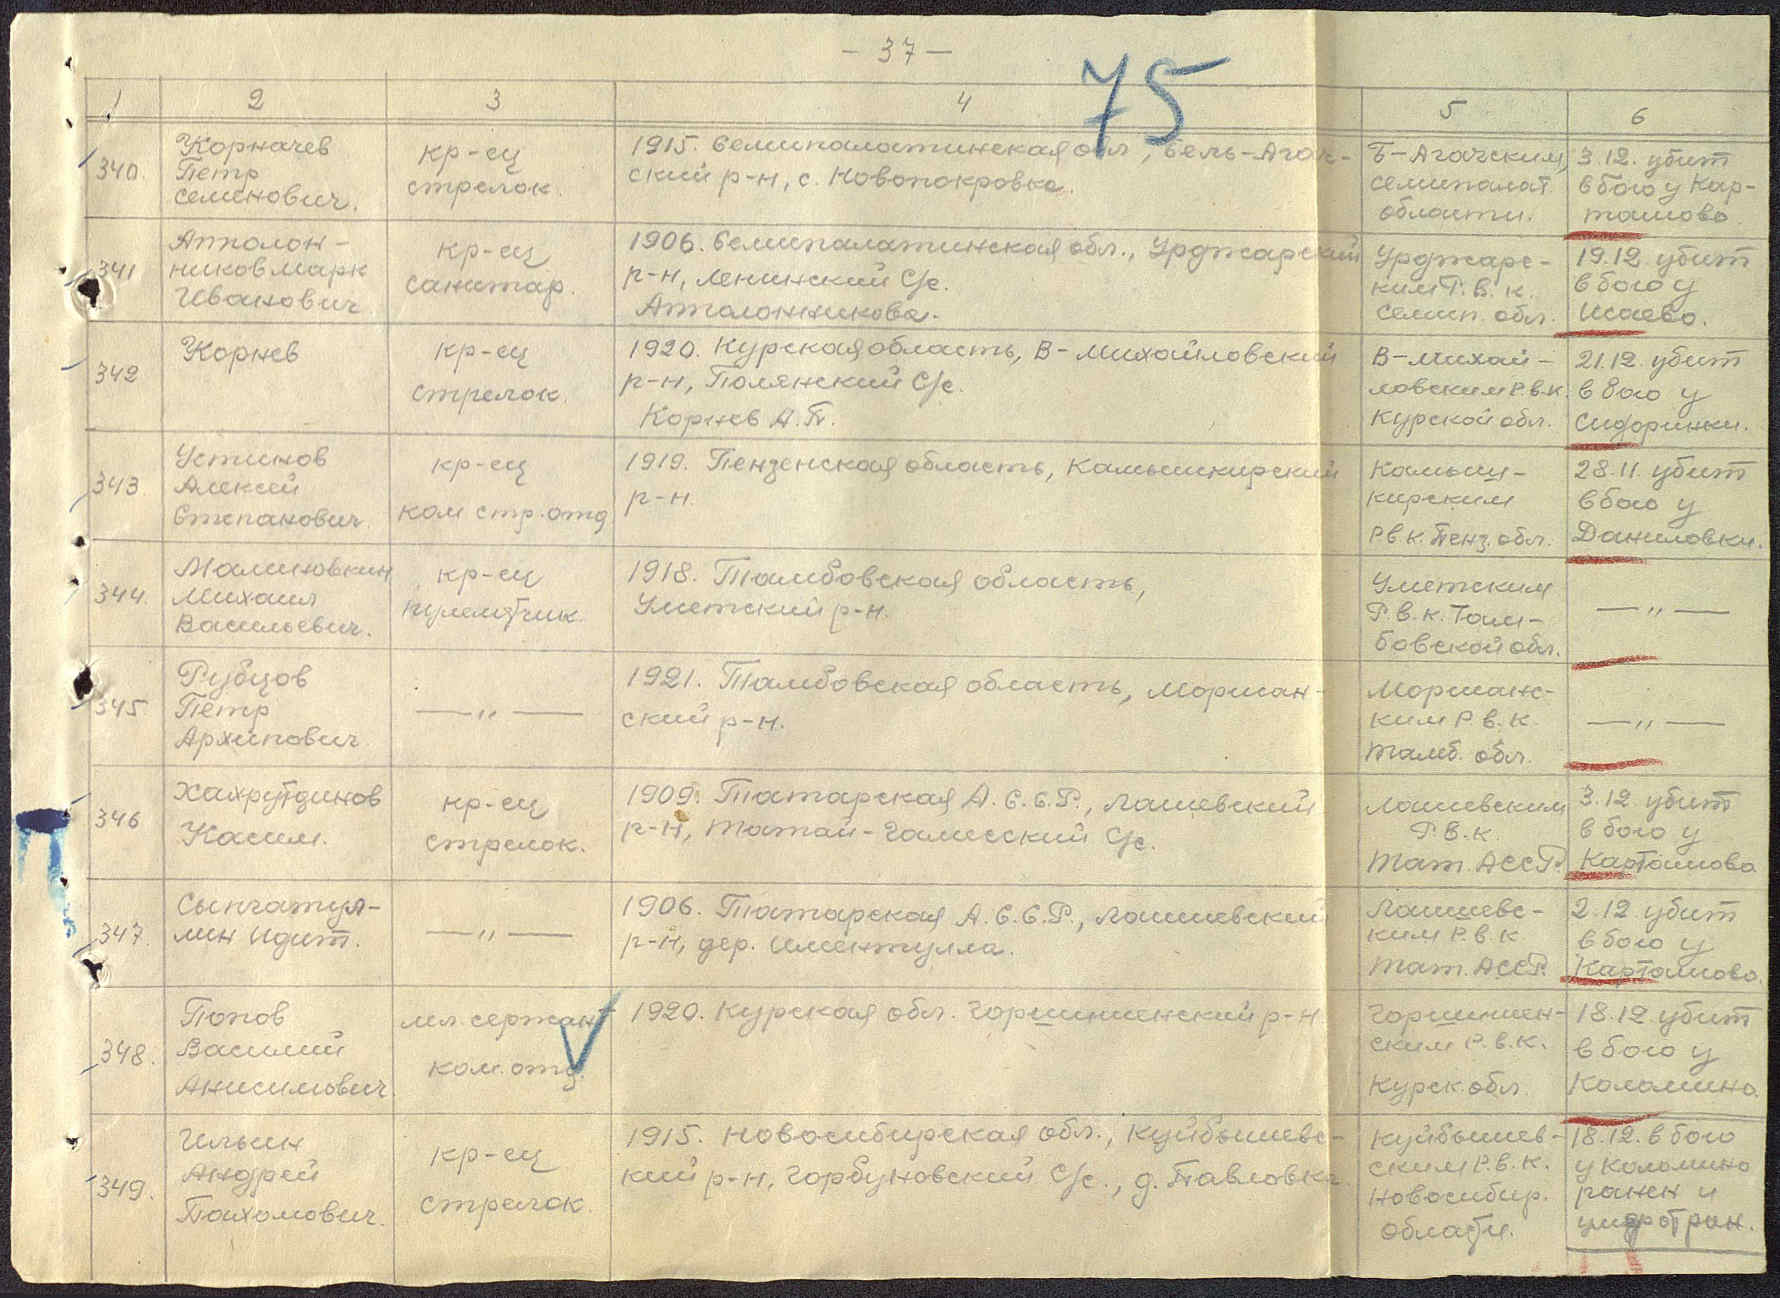 - 37 -
75
1 2 3 4 5 6
340. Корначев Петр Семенович.
кр-ец стрелок.
1915. Семипалатинская обл, Бель-Агач-
ский р-н, с. Новопокровка.
Б-Агачским,
семипалат.
области.
3.12. убит
в бою у Кар-
ташово.
341
Апполон-
ников Марк
Иванович
кр-ец
санитар.
1906. Семипалатинская обл., Урджарский
р-н, Ленинский С/с.
Апполонникова.
Урджарс-
ким Р.В.К.
Семип. обл.
19.12. убит
в бою у
Исаево.
342
Корнев
кр-ец
стрелок.
1920. Курская область, В-Михайловский
р-н, Полянский С/с.
Корнев А.П.
В-Михай-
ловским Р.В.К.
Курской обл.
21.12. убит
в бою у
Сидоринки.
343
Устинов
Алексей
Степанович.
кр-ец
ком стр. отд
1919. Пензенская область, Камышкирский
р-н.
Камыш-
кирским
РВК. Пенз. обл.
28.11. убит
в бою у
Даниловки.
344.
Малиновкин
Михаил
Васильевич.
кр-ец
пулемётчик.
1918. Тамбовская область,
Уметский р-н.
Уметским
Р.В.К. Там-
бовской обл.
— „ —
345
Рубцов
Петр
Архипович
— „ —
1921. Тамбовская область, Моршан-
ский р-н.
Моршанс-
ким Р.В.К.
Тамб. обл.
— „ —
346
Хахрутдинов
Касим.
кр-ец
стрелок.
1909. Татарская А.С.С.Р., Лаишевский
р-н, С/с.
Лаишевским
Р.В.К.
Тат. АССР.
3.12. убит
в бою у
Карташово
347.
Сыпчатул-
лин Идит.
— „ —
1906. Татарская А.С.С.Р., Лаишевский
р-н, дер. Именгулла.
Лаишевс-
ким Р.В.К
Тат. АССР.
2.12 убит
в бою у
Карташово.
348.
Попов
Василий
Анисимович
мл. сержант
ком. отд.
1920. Курская обл. Горшиченский р-н
Горшичен-
ским Р.В.К.
Курск. обл.
18.12 убит
в бою у
Коломино.
349.
Ильин
Андрей
Пахомович.
кр-ец
стрелок.
1915. Новосибирская обл., Куйбышевс-
кий р-н, Горбуновский С/с., д. Павловка.
Куйбышев-
ским Р.В.К.
Новосибир.
области.
18.12. в бою
у Коломино
ранен и